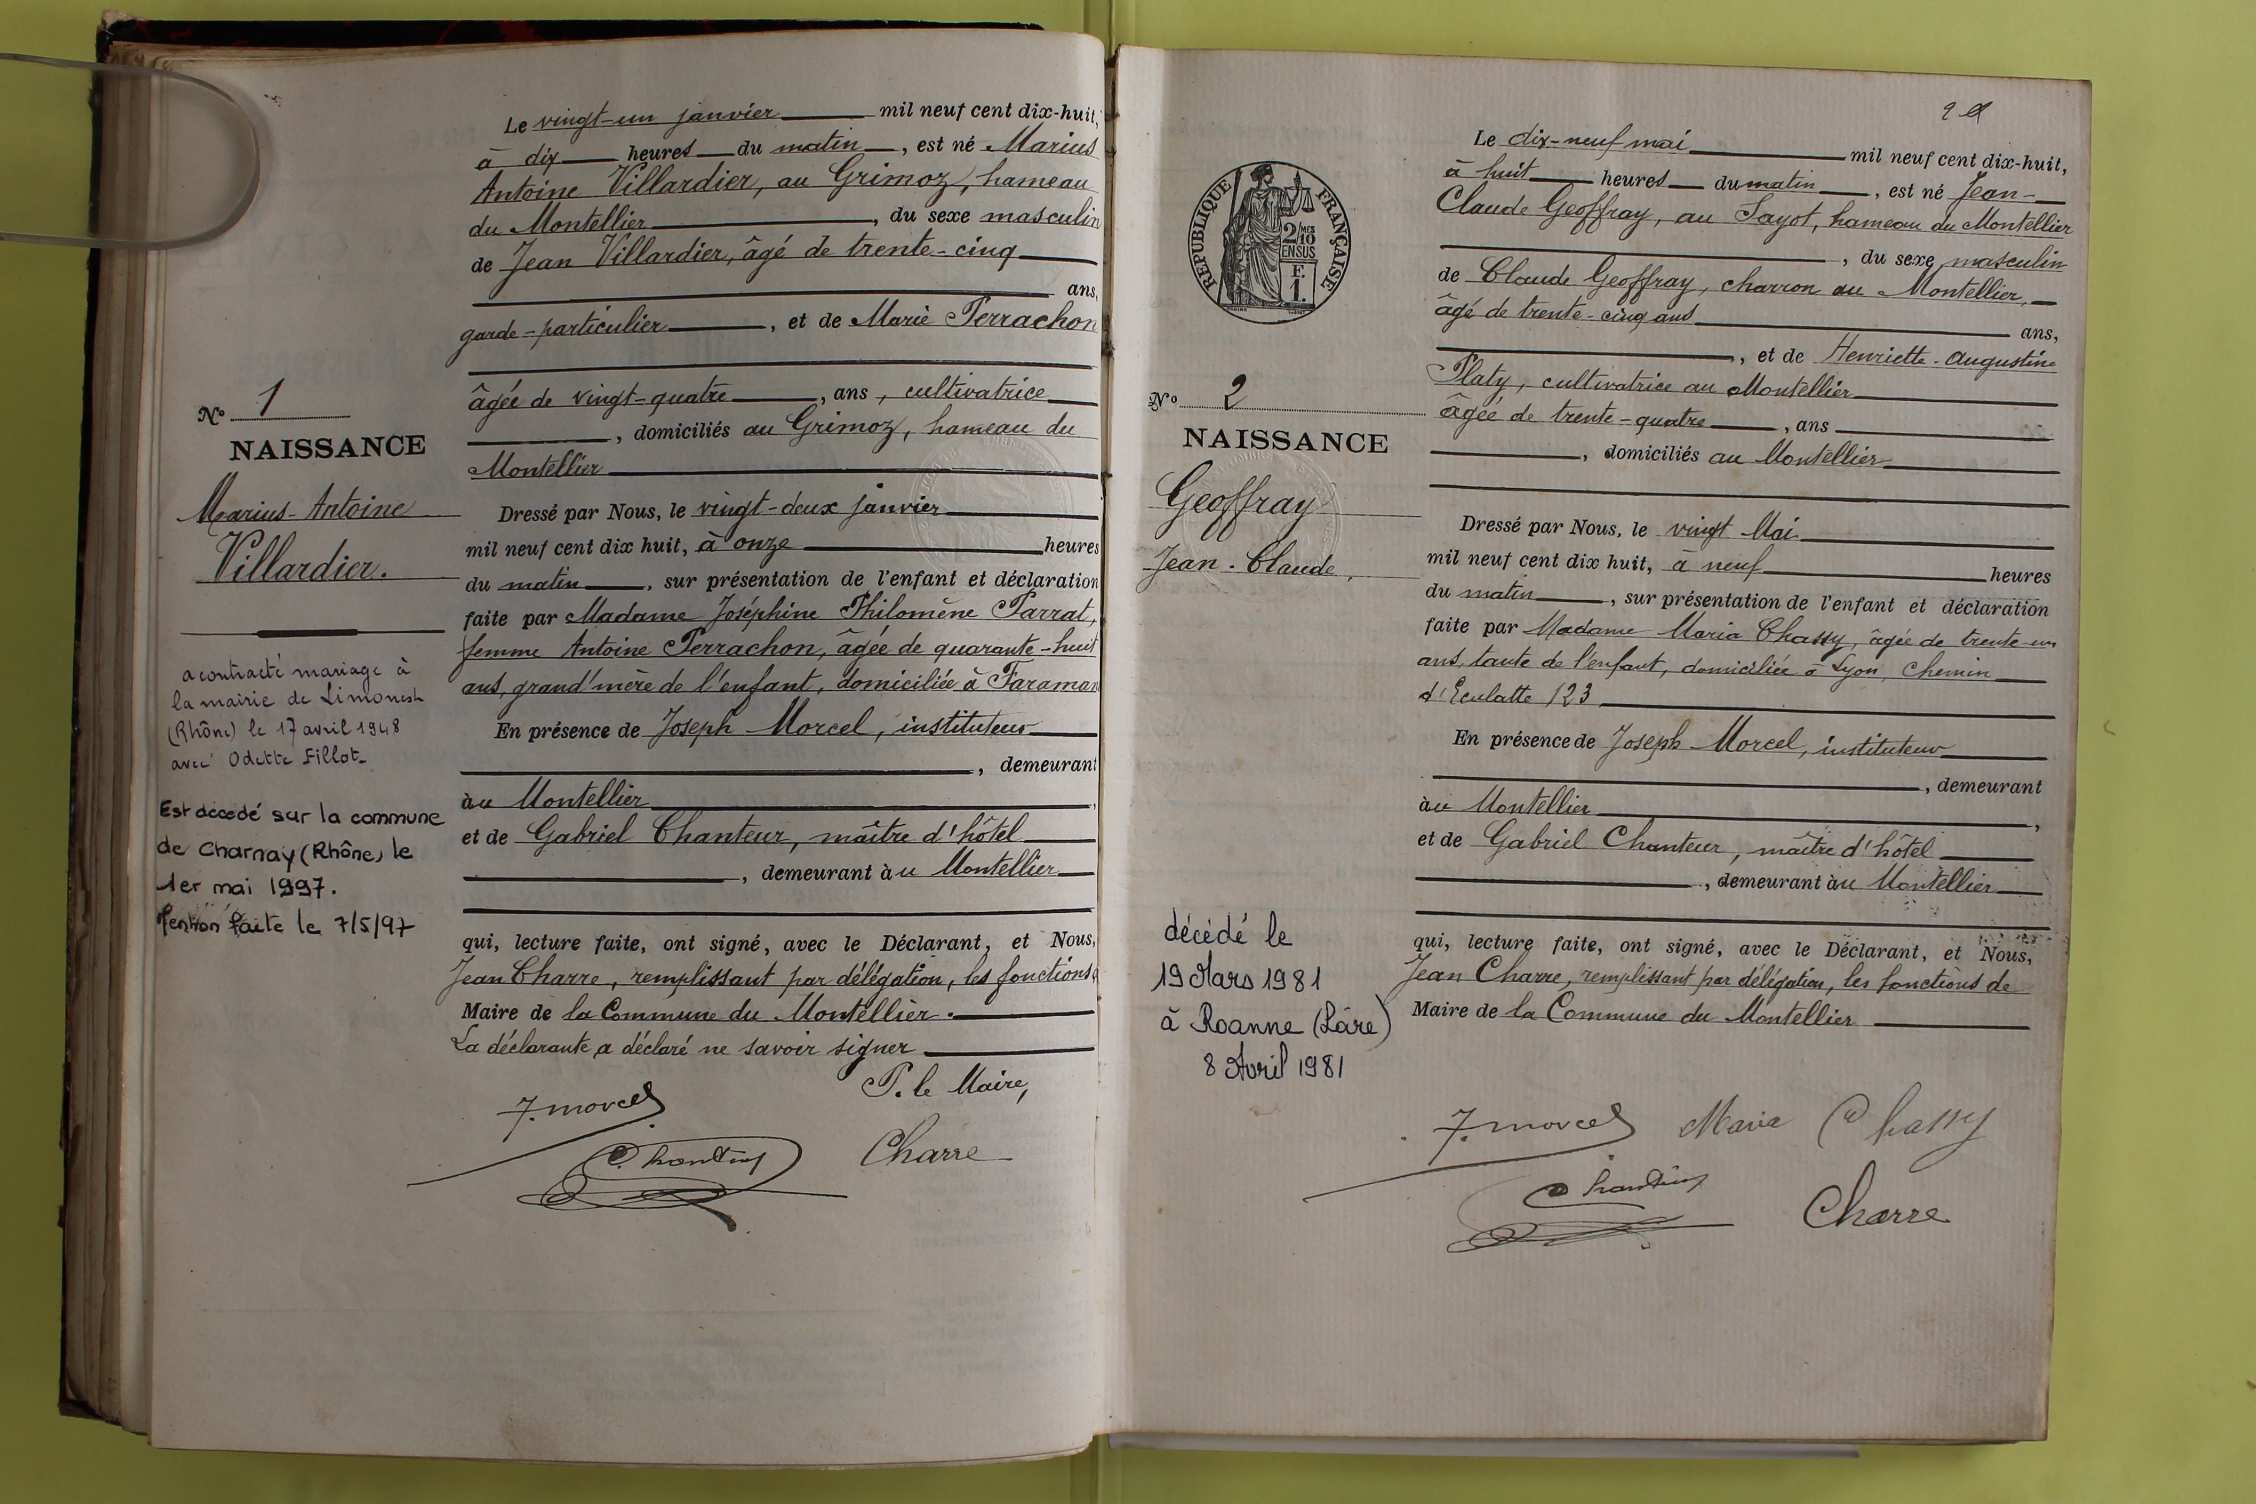 Le vingt-un janvier mil neuf cent dix-huit,
à dix heures du matin, est né Marius
Antoine Villardier, au Grimoz, hameau
du Montellier, du sexe masculin
de Jean Villardier, âgé de trente-cinq
ans,
garde-particulier, et de Marie Perrachon
âgée de vingt-quatre, ans, cultivatrice
, domiciliés au Grimoz, hameau du
Montellier
Dressé par Nous, le vingt-deux janvier
mil neuf cent dix huit, à onze heures
du matin, sur présentation de l'enfant et déclaration
faite par Madame Joséphine Philomène Parrat,
femme Antoine Perrachon, âgée de quarante-huit
ans, grand'mère de l'enfant, domiciliée à Faraman
En présence de Joseph Morcel, instituteur
, demeurant
àu Montellier,
et de Gabriel Chanteur, maître d'hôtel
, demeurant àu Montellier
qui, lecture faite, ont signé, avec le Déclarant, et Nous,
Jean Charre, remplissant par délégation, les fonctions
Maire de la Commune du Montellier.
La déclarante a déclaré ne savoir signer
P. le Maire,
J. Morcel
Chanteur
Charre
No 1
NAISSANCE
Marius-Antoine
Villardier.
a contracté mariage à
la mairie de Limonest
(Rhône) le 17 avril 1948
avec Odette Fillot
Est décédé sur la commune
de Charnay (Rhône) le
1er mai 1997.
Mention faite le 7/5/97
RÉPUBLIQUE FRANÇAISE
2/10 MES
EN SUS
F.
1.
Le dix-neuf mai mil neuf cent dix-huit,
à huit heures du matin, est né Jean-
Claude Geoffray, au Sayot, hameau du Montellier
, du sexe masculin
de Claude Geoffray, charron au Montellier,
âgé de trente-cinq ans ans,
, et de Henriette-Augustine
Platy, cultivatrice au Montellier
âgée de trente-quatre, ans
, domiciliés au Montellier
Dressé par Nous, le vingt Mai
mil neuf cent dix huit, à neuf heures
du matin, sur présentation de l'enfant et déclaration
faite par Madame Maria Chassy, âgée de trente-un
ans, tante de l'enfant, domiciliée à Lyon, Chemin
123
En présence de Joseph Morcel, instituteur
, demeurant
àu Montellier,
et de Gabriel Chanteur, maître d'hôtel
, demeurant àu Montellier
qui, lecture faite, ont signé, avec le Déclarant, et Nous,
Jean Charre, remplissant par délégation, les fonctions de
Maire de la Commune du Montellier
J. Morcel Maria Chassy
Chanteur
Charre
No 2
NAISSANCE
Geoffray
Jean-Claude,
décédé le
19 Mars 1981
à Roanne (Loire)
8 Avril 1981